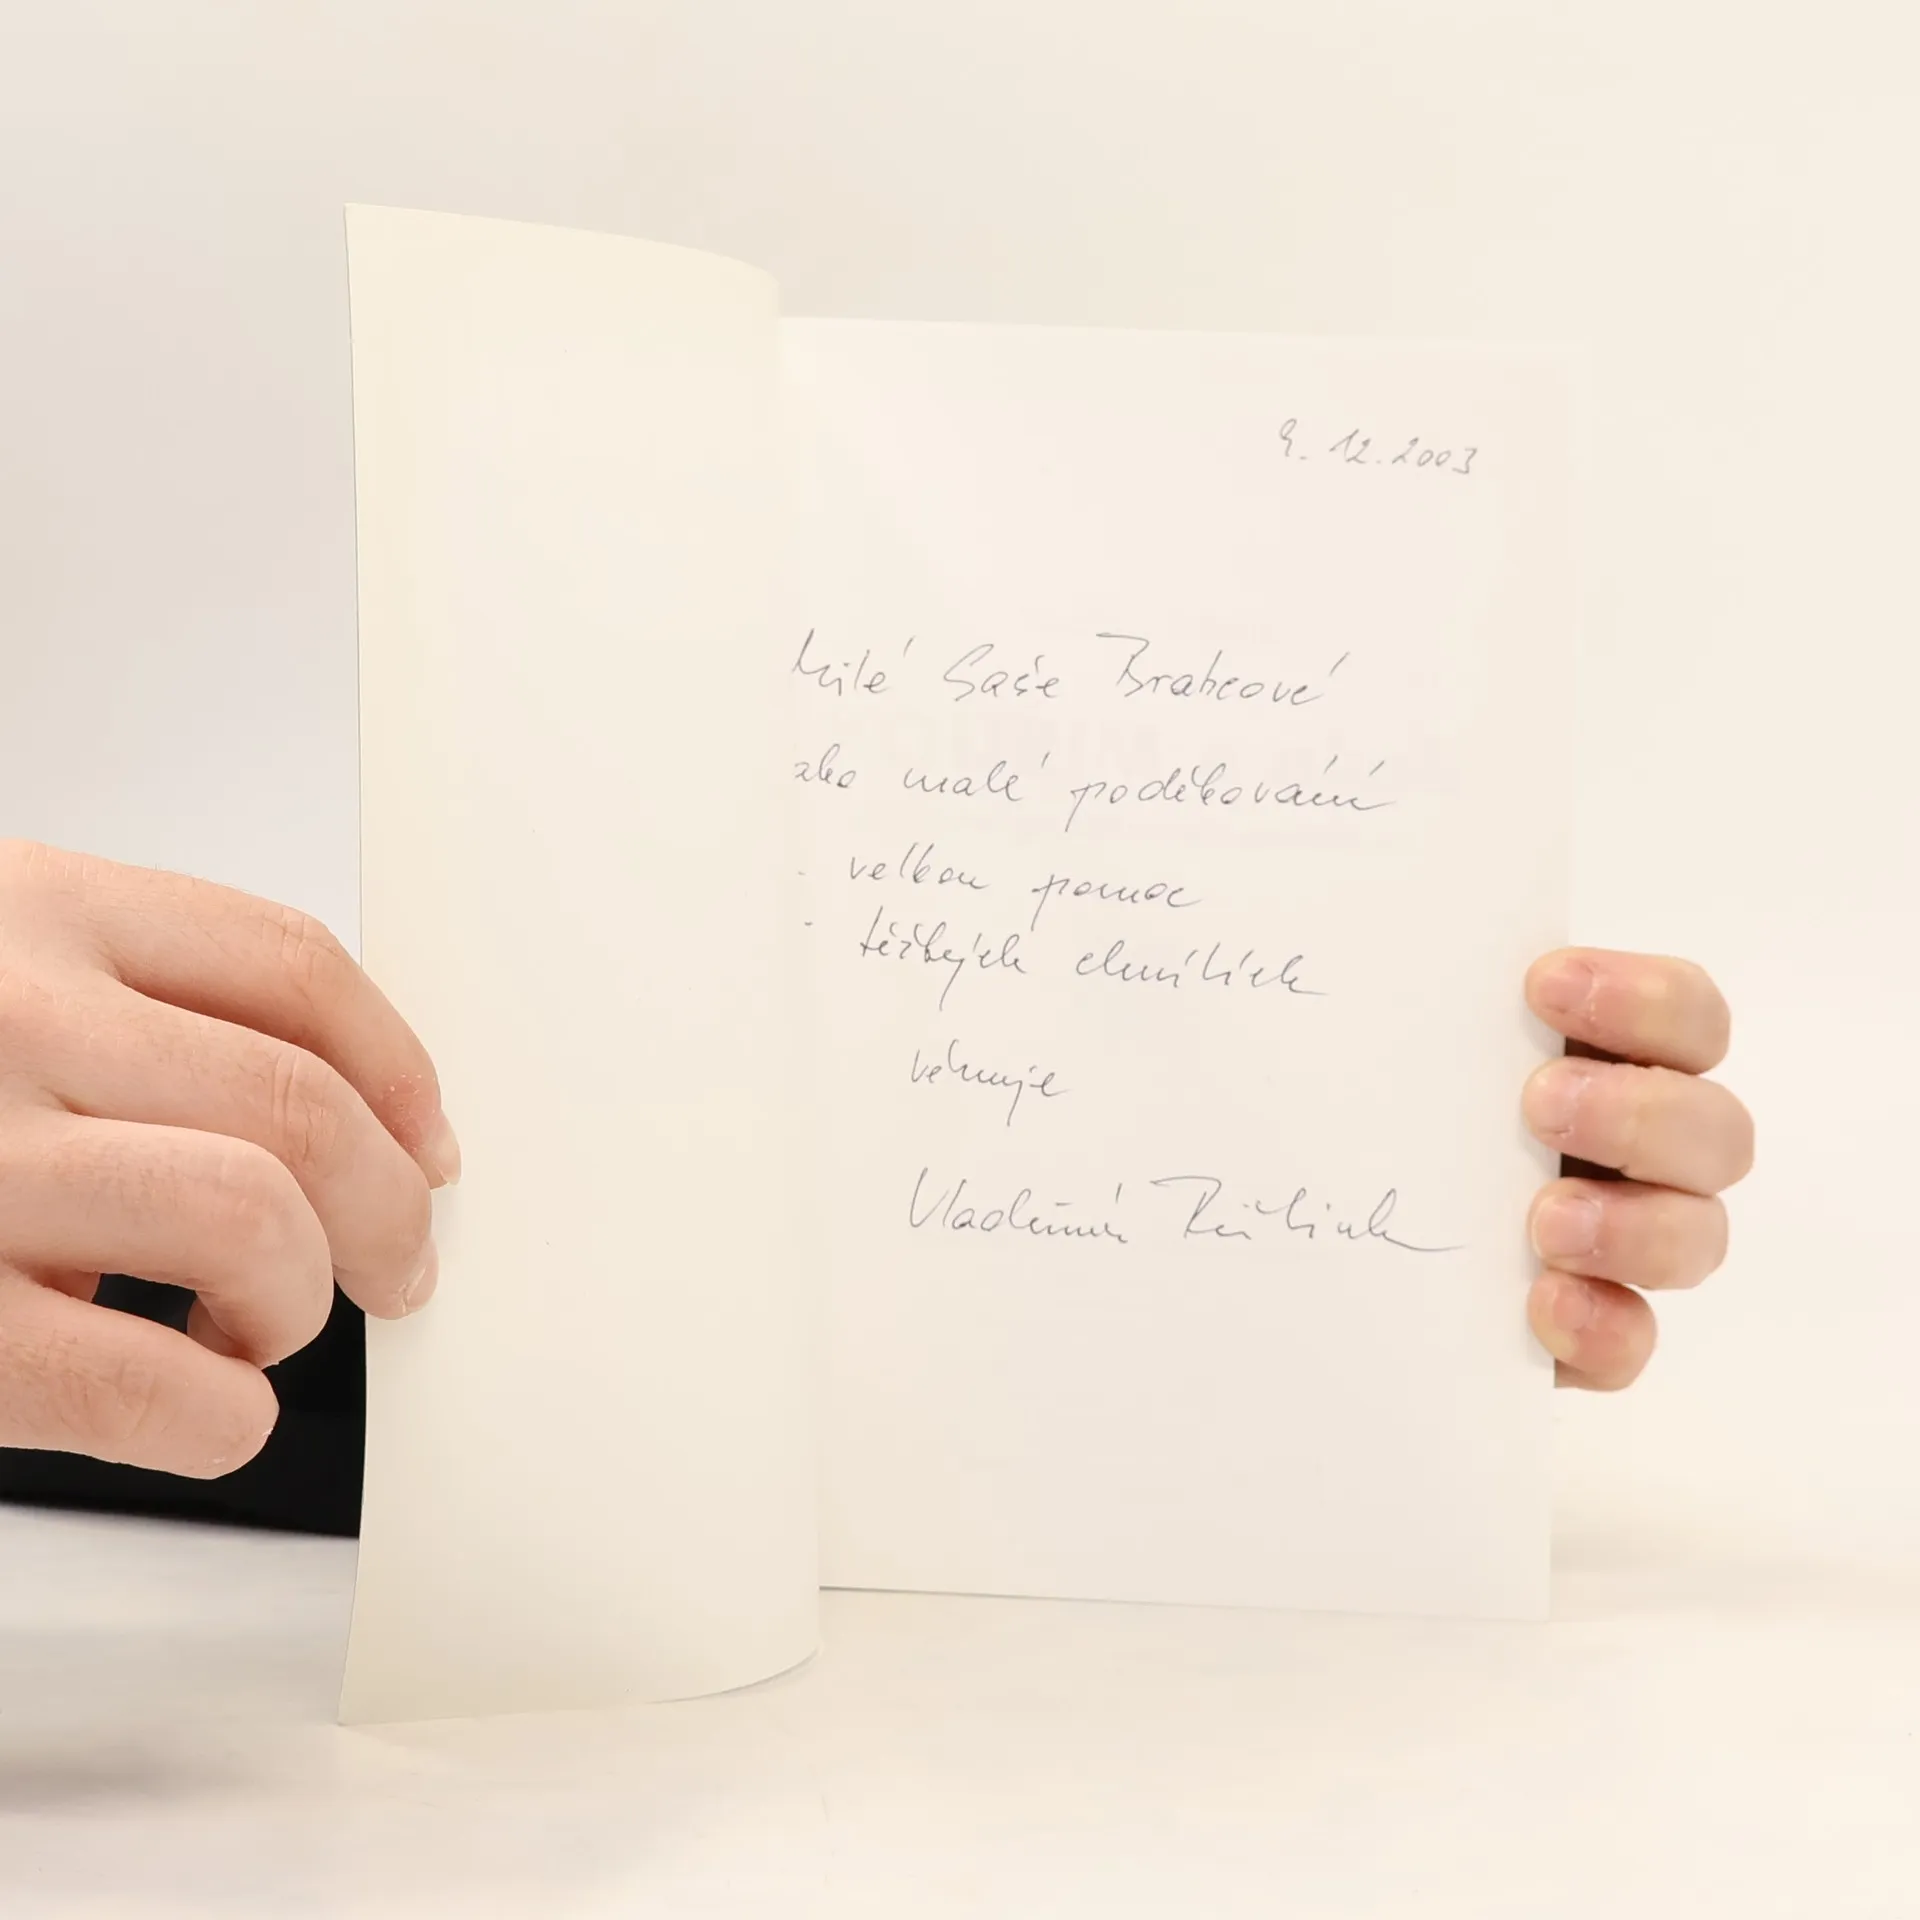 9. 12. 2003
Milé Saše Brabcové
ako malé poděkování
velkou pomoc
těžkých chvílích
věnuje
Vladimír Růžička